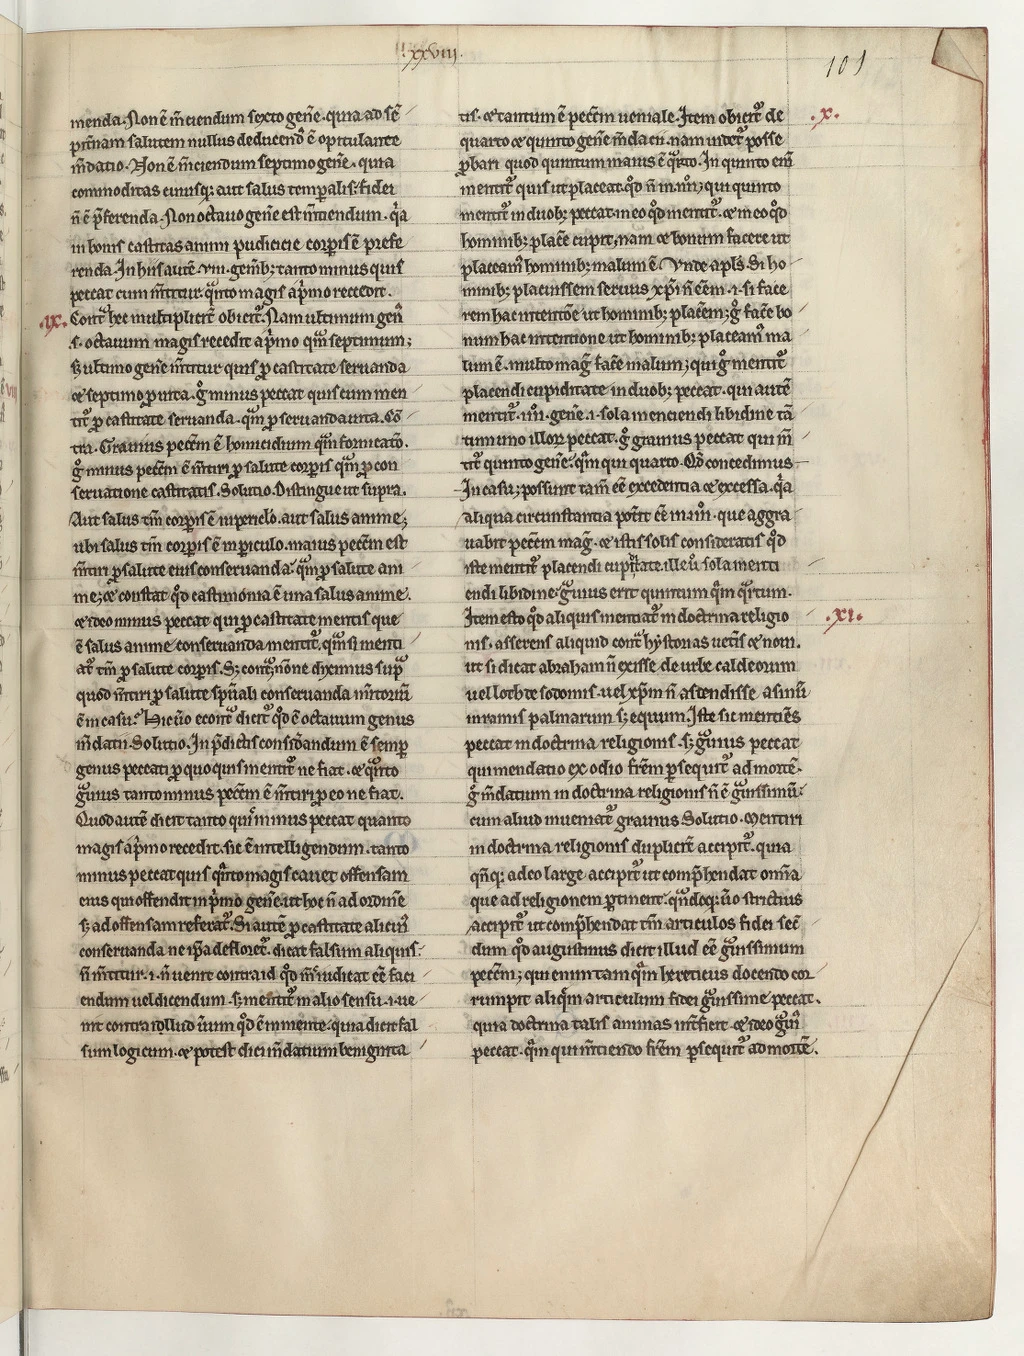 .xxviii.
101
menda. Non ē m̄ciendum sexto geñe. quia ad sē
pit̄nam salutem nullus deducend᷒ ē opitulante
m̄datio. Non ē m̄ciendum septimo geñe. quia
commoditas cuiusq; aut salus temp̱alis. fidei
n̄ ē p̄ferenda. Non octauo geñe est m̄tiendum. q̇a
in bonis castitas animi pudicicie corp̱is ē prefe
renda. In his autē .viii. geñib; tanto minus quis
peccat cum m̄titur. q̈nto magis a p̍mo recedit.
.ix.
Cont̾ hec multiplicit̾ obicit̾. Nam ultimum gen᷒
.s. octauum magis recedit a p̍mo q̈m septimum;
s; ultimo geñe m̄titur quis p̱ castitate seruanda
⁊ septimo p̱ uita. g̊ minus peccat quis cum men
tit̾ p̱ castitate seruanda. q̈m p̱ seruanda uita. Cō
tra. Grauius pecc̄m ē homicidium q̈m fornicatō.
g̊ minus pecc̄m ē m̄tiri p̱ salute corp̱is q̈m p̱ con
seruatione castitatis. Solutio. Distingue ut supra.
Aut salus tm̄ corp̱is ē in periclo. aut salus anime;
ubi salus tm̄ corp̱is ē in p̱iculo. maius pecc̄m est
m̄tiri p̱ salute eius conseruanda. q̈m p̱ salute ani
me; ⁊ constat q̊d castimonia ē una salus anime.
⁊ ideo minus peccat qui p̱ castitate mentis que
ē salus anime conseruanda mentit̾. q̈m si menti
at̾ tm̄ p̱ salute corp̱is. S; cont̾; nōne diximus sup̈
quod m̄tiri p̱ salute sp̄uali conseruanda m̄toriū
ē in casu? Hic ū̊o econt̾ dicit̾ q̊d ē octauum genus
m̄datii. Solutio. In p̄dictis consid̾andum ē semp̱
genus peccati p̱ quo quis mentit̾ ne fiat. ⁊ q̈nto
g̈uius tanto minus pecc̄m ē m̄tiri p̱ eo ne fiat.
Quod autē dicit tanto quē minus peccat quanto
magis a p̍mo recedit. sic ē intelligendum. tanto
minus peccat quis q̈nto magis cauet offensam
eius qui offendit in p̍mo geñe. ut hoc n̄ ad ordinē
s; ad offensam referat̾. Si autē p̱ castitate alicui᷒
conseruanda ne ip̄a defloret̾. dicat falsum aliquis.
n̄ m̄titur. .i. n̄ uenit contra id q̊d m̄s iudicat eē faci
endum uel dicendum. s; mentit̾ in alio sensu .i. ue
nit contra illud uirum q̊d ē in mente. quia dicit fal
sum logicum. ⁊ potest dici m̄datium benignita
tis. ⁊ tantum ē pecc̄m ueniale. Item obicit̾ de
.x.
quarto ⁊ quinto geñe m̄dacii. nam uidet̾ posse
p̱bari quod quintum maius ē q̈rto. In quinto eni᷒
mentit̾ quis ut placeat. q̊d n̄ in .iiii.; qui quinto
mentit̾ in duob; peccat. in eo q̊d mentit̾. ⁊ in eo q̊d
hominib; placē cupit; nam ⁊ bonum facere ut
placeam᷒ hominib; malum ē. Vnde apl̄s. Si ho
minib; placuissem seruus xp̄i n̄ eēm .i. si face
rem hac intentōe ut hominib; placēm; g̊ facē bo
num hac intentione ut hominib; placeam᷒ ma
lum ē. multo mag̾ facē malum; qui g̊ mentit̾
placendi cupiditate in duob; peccat. qui autē
mentit̾ .iiii. geñe .i. sola menciendi libidine tā
tum uno illoꝝ peccat. g̊ grauius peccat qui m̄
tit̾ quinto geñe. q̈m qui quarto. Q̊d concedimus
In casu; possunt tam̄ eē excedentia ⁊ excessa. q̇a
aliqua circumstantia potit̾ eē in .iiii. que aggra
uabit pecc̄m mag̾. ⁊ istis solis consideratis q̊d
iste mentit̾ placendi cupiditate. ille ū̊ sola menti
endi libidine. g̈uius erit quintum q̈m q̈rtum.
Item esto q̊d aliquis mentiat̾ in doctrina religio
.xi.
nis. asserens aliquid cont̾ hystorias uet̾is ⁊ noui.
ut si dicat abraham n̄ exisse de urbe caldeorum
uel loth de sodomis. uel xp̄m n̄ ascendisse asinū
in ramis palmarum s; equum. Iste sic mentiēs
peccat in doctrina religionis. s; g̈uius peccat
qui mendatio ex odio fr̄em p̱sequit̾ ad mortē.
g̊ m̄datium in doctrina religionis n̄ ē g̈uissimū.
cum aliud inueniat̾ grauius. Solutio. Mentiri
in doctrina religionis duplicit̾ accipit̾. quia
q̈nq; adeo large accipit̾ ut comp̄hendat omīa
que ad religionem pertinent. q̈ndoq; ū̊o strictius
accipit̾ ut comp̄hendat tm̄ articulos fidei sec̄
dum q̊d augustinus dicit illud eē g̈uissimum
pecc̄m; qui enim tamq̈m hereticus docendo cor
rumpit aliq̈m articulum fidei g̈uissime peccat.
quia doctrina talis animas int̾ficit. ⁊ ideo g̈ui᷒
peccat. q̈m qui m̄tiendo fr̄em p̱sequit̾ ad mortē.